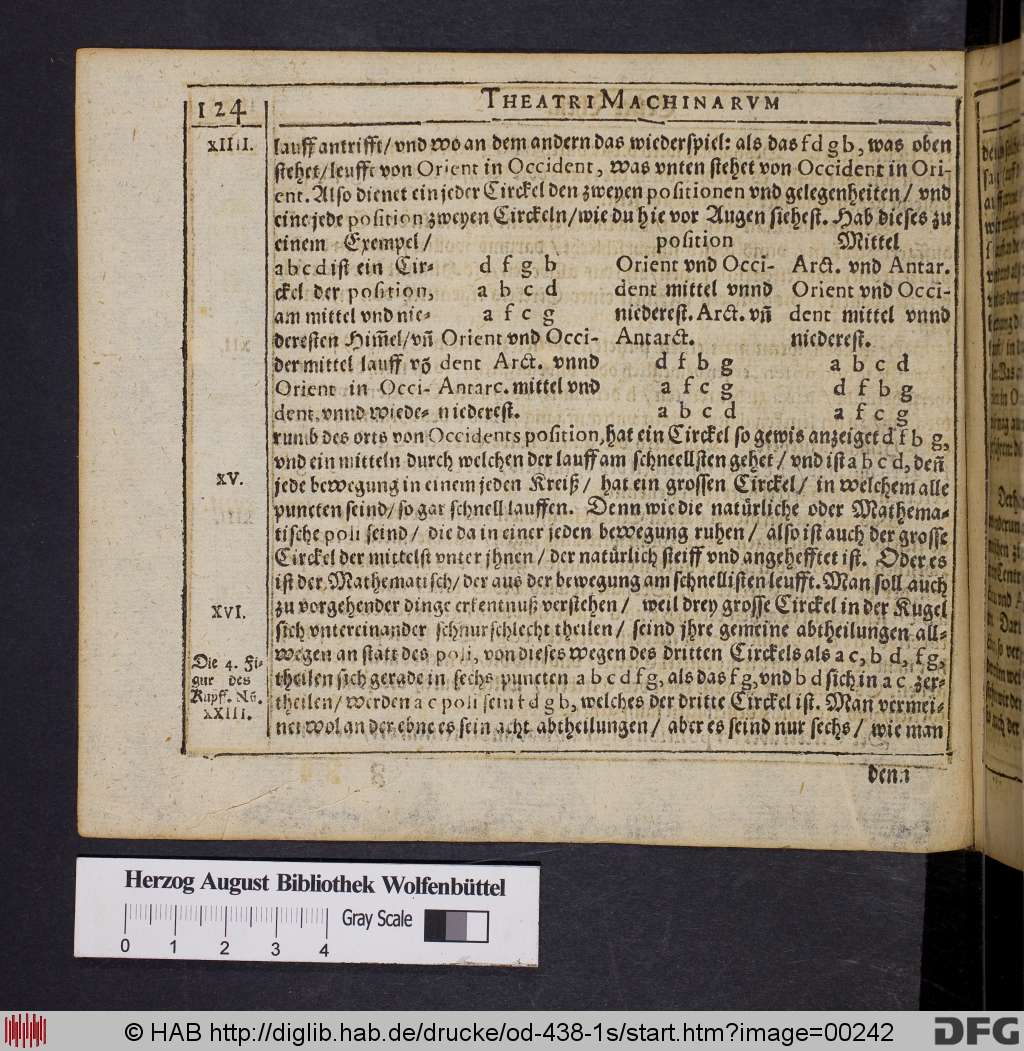 124
THEATRI MACHINARVM
XIIII.
lauff antrifft/ vnd wo an dem andern das wiederspiel: als das f d g b, was oben
stehet/ leufft von Orient in Occident, was vnten stehet von Occident in Ori-
ent. Also dienet ein jeder Circkel den zweyen positionen vnd gelegenheiten/ vnd
eine jede position zweyen Circkeln/ wie du hie vor Augen siehest. Hab dieses zu
einem Exempel/
a b c d ist ein Cir-
ckel der position,
am mittel vnd nie-
deresten Him̃el/ vñ
der mittel lauff võ
Orient in Occi-
dent, vnnd wiede-
d f g b
a b c d
a f c g
Orient vnd Occi-
dent Arct. vnnd
Antarc. mittel vnd
niederest.
position
Orient vnd Occi-
dent mittel vnnd
niederest. Arct. vñ
Antarct.
d f b g
a f c g
a b c d
Mittel
Arct. vnd Antar.
Orient vnd Occi-
dent mittel vnnd
niederest.
a b c d
d f b g
a f c g
rumb des orts von Occidents position, hat ein Circkel so gewis anzeiget d f b g,
vnd ein mitteln durch welchen der lauff am schneellsten gehet/ vnd ist a b c d, deñ
XV.
jede bewegung in einem jeden Kreiß/ hat ein grossen Circkel/ in welchem alle
puncten seind/ so gar schnell lauffen. Denn wie die natürliche oder Mathema-
tische poli seind/ die da in einer jeden bewegung ruhen/ also ist auch der grosse
Circkel der mittelst vnter jhnen/ der natürlich steiff vnd angehefftet ist. Oder es
ist der Mathematisch/ der aus der bewegung am schnellisten leufft. Man soll auch
XVI.
zu vorgehender dinge erkentnuß verstehen/ weil drey grosse Circkel in der Kugel
sich vntereinander schnurschlecht theilen/ seind jhre gemeine abtheilungen all-
wegen an statt des poli, von dieses wegen des dritten Circkels als a c, b d, f g,
Die 4. Fi-
gur des
Kupff. Nũ.
XXIII.
theilen sich gerade in sechs puncten a b c d f g, als das f g, vnd b d sich in a c zer-
theilen/ werden a c poli sein f d g b, welches der dritte Circkel ist. Man vermei-
net wol an der ebne es sein acht abtheilungen/ aber es seind nur sechs/ wie man
denn
Herzog August Bibliothek Wolfenbüttel
Gray Scale
0 1 2 3 4
© HAB http://diglib.hab.de/drucke/od-438-1s/start.htm?image=00242
DFG